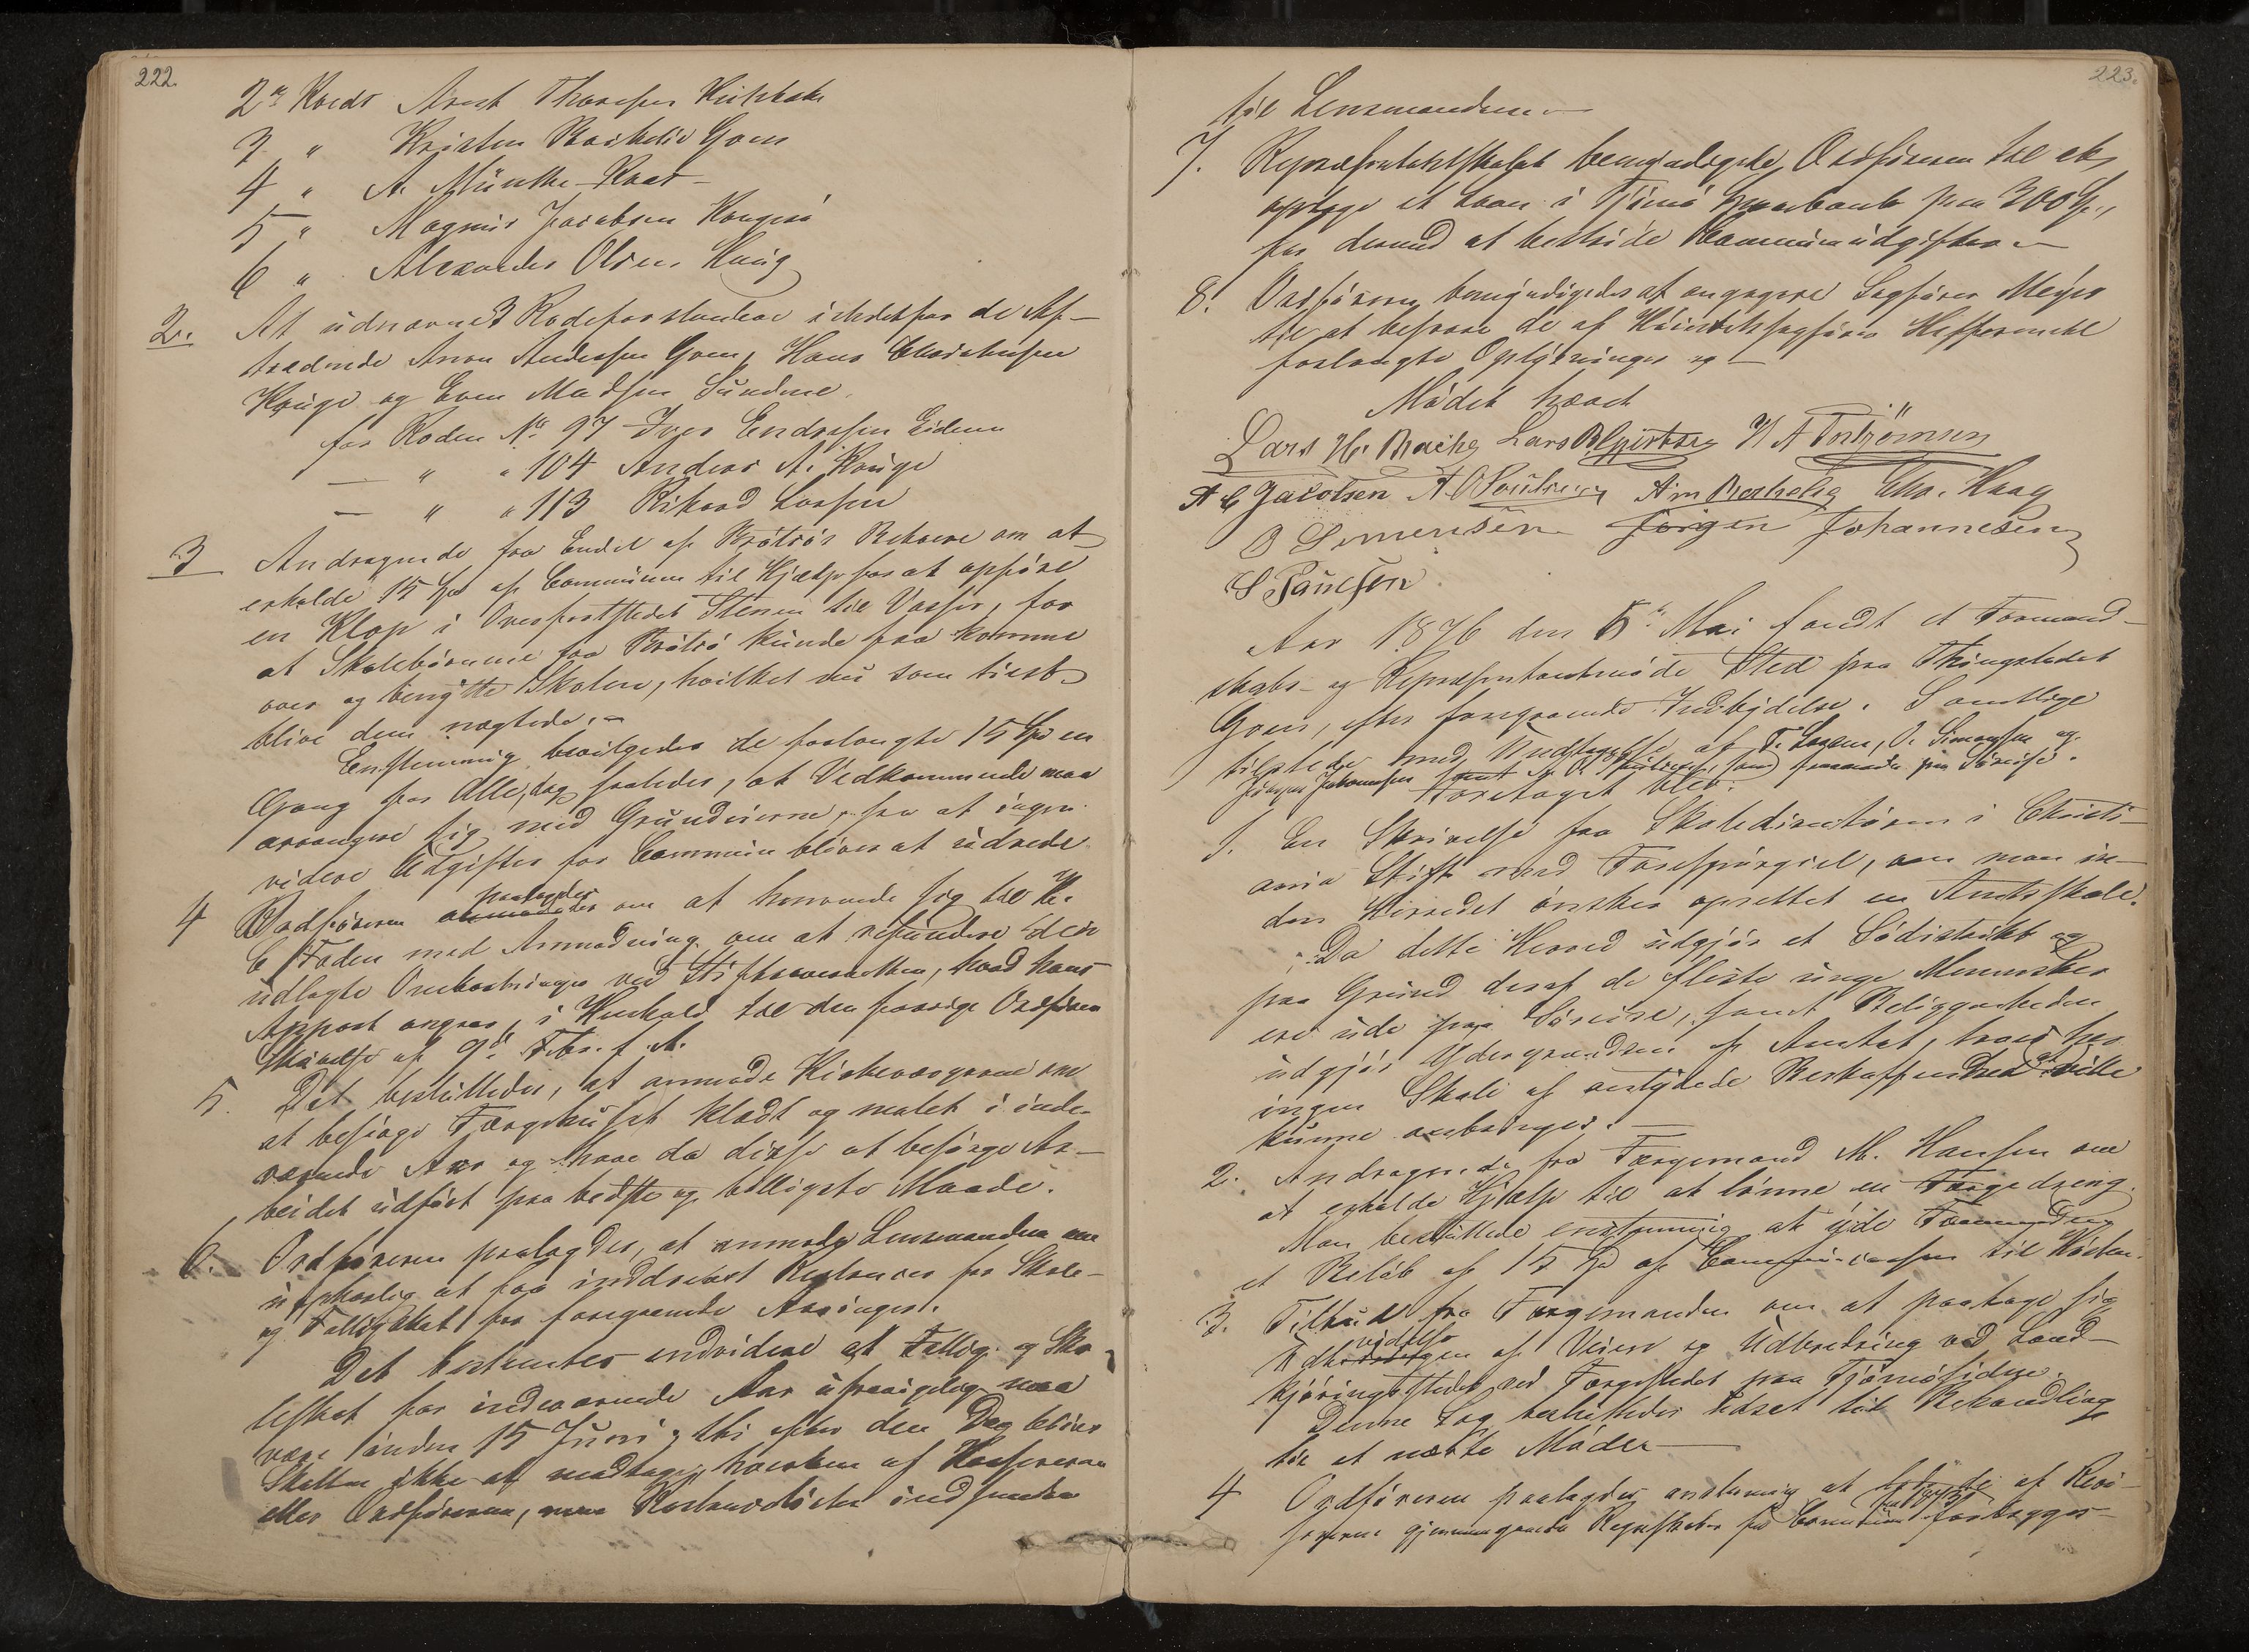 222.
2den Kreds Arent Thoresen
3 " Kristen Goen
4 " A. Münster Kaas
5 " Magnus Jacobsen
6 " Alexander Olsen Haug
2. At udnævnes 3 Rodeforstandere istedetfor de Af-
trædende Aron Andersen Goen, Hans Christensen
Kruge og Even Madsen Sundene.
for Roden No 97 Iver Endresen Eidene
— " " 104 Andreas A. Kruge
— " " 113 Rikard Larsen
3 Andragende fra Endel af Brøtsøs Beboere om at
erholde 15 Spd af Communen til Hjælp for at opføre
en Klop i Overfartstedet Stenen til Vasser, for
at Skolebørnene fra Brøtsø kunde faa komme
over og benytte Skolen, hvilket nu som tiest
blive dem nægtede. —
Enstemmig bevilgedes de forlangte 15 Spd en
Gang for Alle, dog saaledes, at Vedkommende maa
arrangere sig med Grundeierne, saa at ingen
videre Udgifter for Commun bliver at udrede.
4 Ordføreren paalagdes om at henvende sig til H.
C Foden med Anmodning om at refundere den
udlagte Omkostninger ved Stiftsoverretten, hvad hans
Appost angaar, i Henhold til den forrige Ordførers
Skrivelse af 9de Febr. f. A.
5. Det besluttedes, at anmode Kirkeværgerne om
at besørge Færgehuset klædt og malet i inde-
værende Aar og have da disse at besørge Ar-
beidet udført paa bedste og billigste Maade.
6. Ordføreren paalagdes, at anmode Lensmanden om
uopholdelig at faa inddrevet Restancer for Skole-
og Fattigskat for foregaaende Aaringer.
Det bestemtes endvidere at Fattig- og Sko-
leskat for indeværende Aar ufravigelig maa
være inden 15 Juni, thi efter den Dag bliver
Skatten ikke at modtage, hverken af Kassereren
eller Ordføreren, men Restancelister indsendes
223.
til Lensmanden —
7. Repræsentantskabet bemyndigede Ordføreren til at
optage et Laan i Tjømø Sparebank paa 300 Spd,
for dermed at bestride Communeudgifter —
8. Ordføreren bemyndigedes at engagere Sagfører Meyer
til at besvare de af Høiesteretssagfører Heffermehl
forlangte Oplysninger og —
Mødet hævet
Lars H. Bache Lars H A Torbjørnsen
A C Jacobsen A O Poulsen Chr. Haag
O Semensen Jørgen Johannesen
S Paulsen
Aar 1876 den 5te Mai fandt et Formand-
skabs- og Repræsentantmøde Sted paa Thingstedet
Goen, efter foregaaende Indbydelse. Samtlige
tilstede med Undtagelse af T. Larsen, O. Simonsen og
Jørgen Johannesen samt A. O. Poulsen, som fraværende paa Søreise.
Foretaget blev:
1. En Skrivelse fra Skoledirektøren i Christi-
ania Stift med Forespørgsel, om man in-
den Herredet ønsker oprettet en Amtsskole.
Da dette Herred udgjør et Sødistrikt og
paa Grund deraf de fleste unge Mennesker
ere ude paa Søreise, samt Beliggenheden
udgjør Ydergrændsen af Amtet, troes her
ingen Skole af antydede Beskaffenhed at ville
kunne anbringes. —
2. Andragende fra Færgemand M. Hansen om
at erholde Hjælp til at lønne en Færgedreng.
Man besluttede enstemmig at yde Færgemanden
et Beløb af 15 Spd af Communekassen til Hjælp.
3. Tilbud fra Færgemanden om at paatage sig
Udvidelsen af Veien og Udbedring ved Land-
kjøringsstedet ved Færgestedet paa Tjømøsiden.
Denne Sag besluttedes udsat til Behandling
til et næste Møde —
4 Ordføreren paalagdes enstemmig at de af Revi-
sorerne gjennemgaaede Regnskaber for Communen forlægges